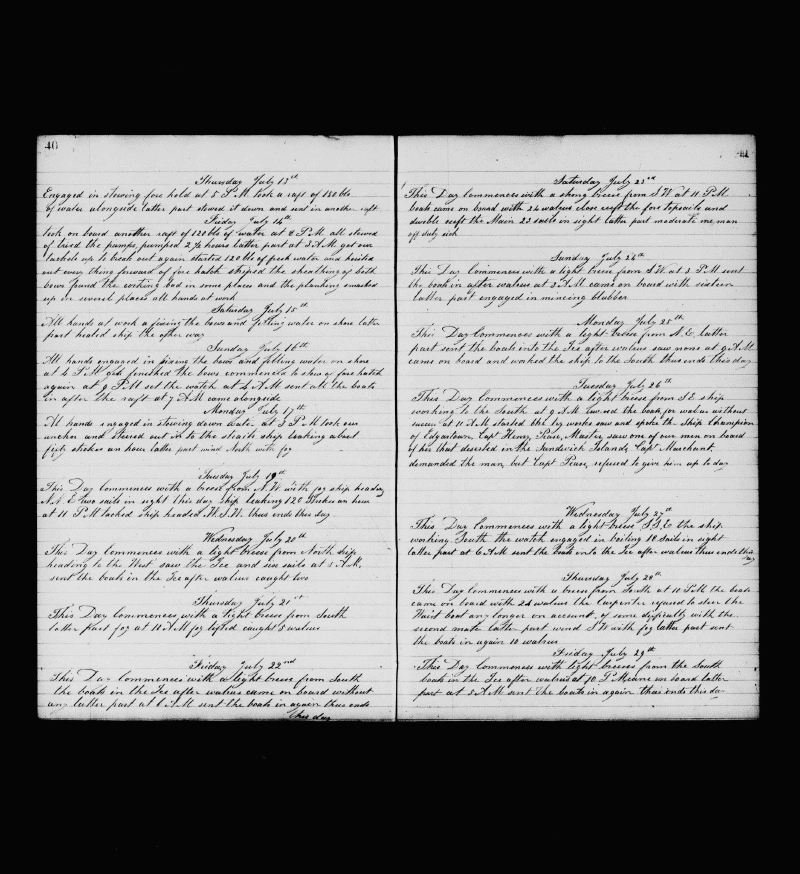 40
Thursday July 13th
Engaged in stowing fore hold at 5 P.M. took a raft of 150 bbls
of water alongside latter part stowed it down and sent in another raft
Friday July 14th
took on board another raft of 120 bbls of water at 8 P.M. all stowed
of tried the pumps, pumped 2 1/2 hours latter part at 3 A.M. got our
tackels up to break out again started 120 bbl of fresh water and hoisted
out every thing forward of fore hatch striped the sheathing of both
bows found the corking bad in some places and the planking smashed
up in several places all hands at work
Saturday July 15th
All hands at work a fixing the bows and filling water on shore latter
part healed ship the other way
Sunday July 16th
All hands engaged in fixing the bows and filling water on shore
at 4 P.M. got finished the bows commenced to stow of fore hatch
again at 9 P.M. set the watch at 4 A.M. sent all the boats
in after the raft at 7 A.M. came alongside
Monday July 17th
All hands engaged in stowing down water at 3 P.M. took our
anchor and steered out to the straits ship leaking about
fifty strokes an hour latter part wind North with fog
Tuesday July 19th
This Day Commences with a breese from N.W. with fog ship heading
N.N.E. two sails in sight this day ship leaking 120 strokes an hour
at 11 P.M. tacked ship headed W.S.W. thus ends this day
Wednesday July 20th
This Day Commences with a light breese from North ship
heading to the West saw the Ice and six sails at 5 A.M.
sent the boats in the Ice after walrus caught two
Thursday July 21st
This Day Commences with a light breese from South
latter part fog at 10 A.M. fog lifted caught 5 walrus
Friday July 22nd
This Day Commences with a light breese from South
the boats in the Ice after walrus came on board without
any latter part at 6 A.M. sent the boats in again thus ends
this day
41
Saturday July 23rd
This Day Commences with a strong breese from S.W. at 11 P.M.
boats came on board with 24 walrus close reeft the fore topsails and
double reeft the Main 23 sails in sight latter part moderate one man
off duty sick
Sunday July 24th
This Day Commences with a light breese from S.W. at 3 P.M. sent
the boats in after walrus at 3 A.M. came on board with sixteen
latter part engaged in mincing blubber
Monday July 25th
This Day Commences with a light breese from N.E. latter
part sent the boats into the Ice after walrus saw none at 9 A.M.
came on board and worked the ship to the South thus ends this day
Tuesday July 26th
This Day Commences with a light breese from S.E. ship
working to the South at 9 A.M. lowered the boats for walrus without
success at 11 A.M. started the try works saw and spoke the Ship Champion
of Edgartown, Capt Henry Pease, Master saw one of our men on board
of her that deserted in the Sandwich Islands, Capt Marchant,
demanded the man, but Capt Pease, refused to give him up to day
Wednesday July 27th
This Day Commences with a light breese S.S.E. the ship
working South the watch engaged in boiling 18 sails in sight
latter part at 6 A.M. sent the boats into the Ice after walrus thus ends this
day
Thursday July 28th
This Day Commences with a breese from South at 10 P.M. the boats
came on board with 24 walrus the Carpenter refused to steer the
Waist boat any longer on account of some difficulty with the
second mate latter part wind S.W. with fog latter part sent
the boats in again 10 walrus
Friday July 29th
This Day Commences with light breeses from the South
boats in the Ice after walrus at 10 P.M. came on board latter
part at 5 A.M. sent the boats in again thus ends this da